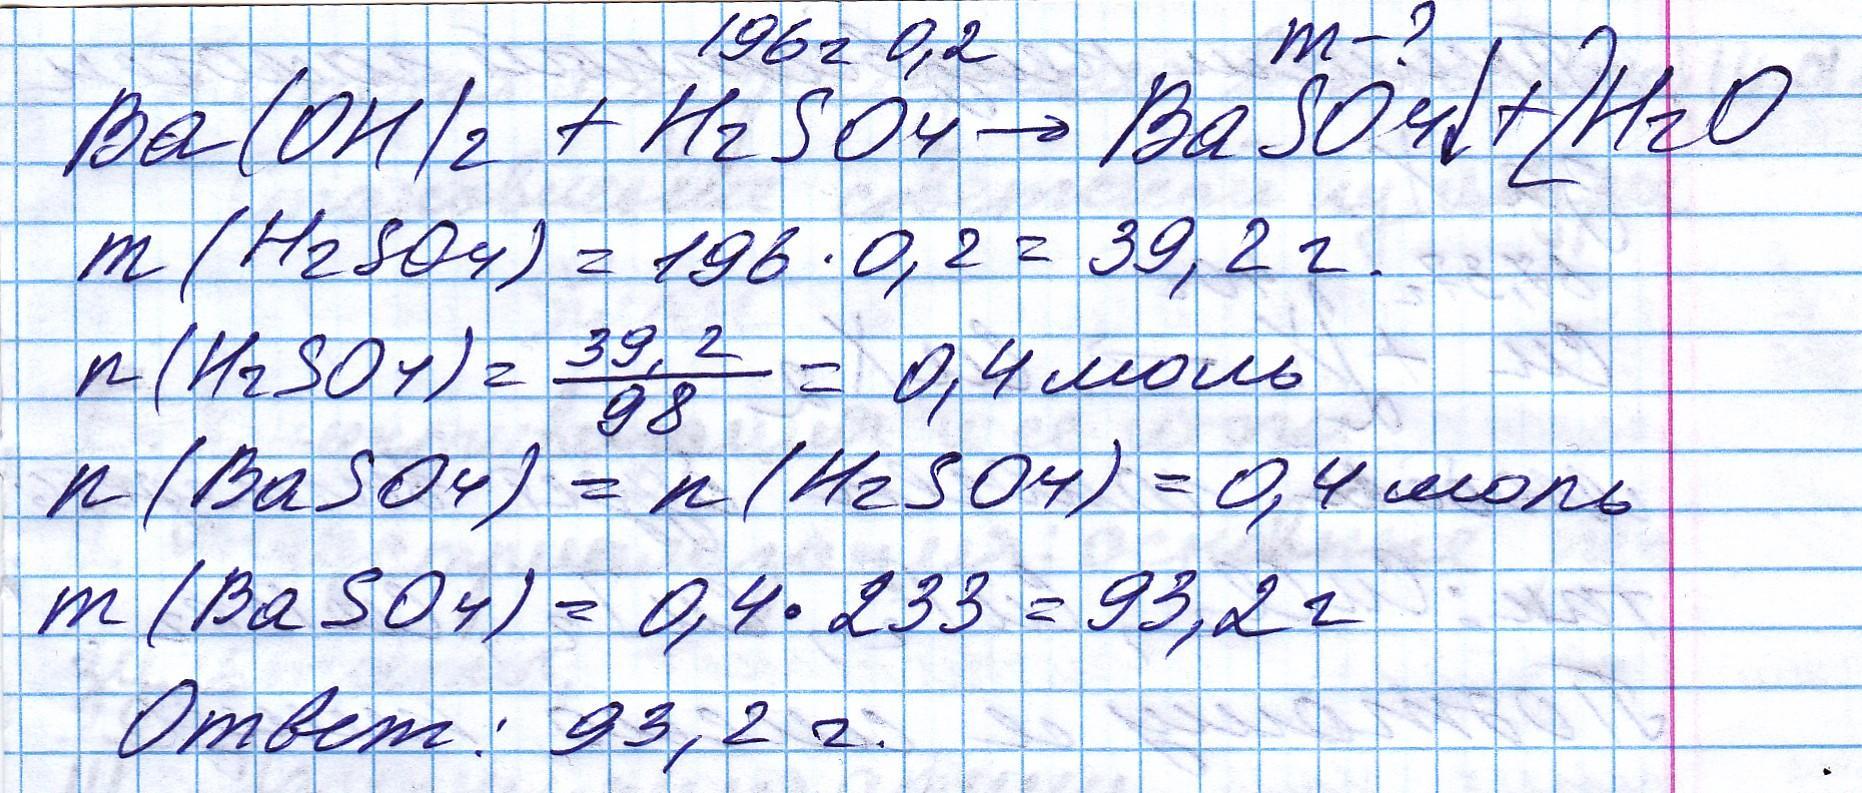 196г 0,2 m-?
Ba(OH)2 + H2SO4 → BaSO4↓ + 2H2O
m(H2SO4) = 196 · 0,2 = 39,2 г.
n(H2SO4) = 39,2/98 = 0,4 моль
n(BaSO4) = n(H2SO4) = 0,4 моль
m(BaSO4) = 0,4 · 233 = 93,2 г
Ответ: 93,2 г.